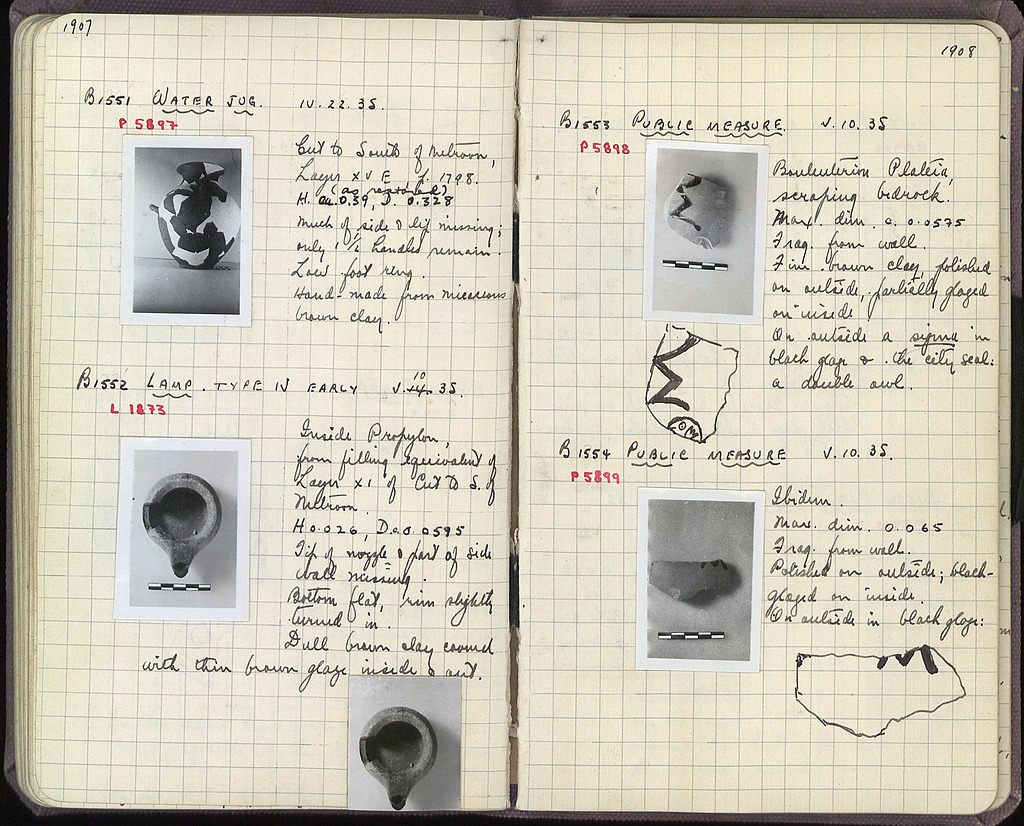 1907
B1551 WATER JUG. IV.22.35.
P 5897
Cut to South of Metroon,
Layer XV E cf. 1798.
(as restored)
H. ca. 0.39, D. 0.328
Much of side & lip missing;
only 1 1/2 handles remain.
Low foot ring.
Hand-made from micaceous
brown clay.
B1552 LAMP. TYPE IV EARLY V.10.35.
L 1873
Inside Propylon,
from filling equivalent of
Layer XI of Cut to S. of
Metroon.
H 0.026, D. 0.0595
Tip of nozzle & part of side
wall missing.
Bottom flat, rim slightly
turned in.
Dull brown clay covered
with thin brown glaze inside & out.
1908
B1553 PUBLIC MEASURE. V.10.35
P5898
Bouleuterion Plateia,
scraping bedrock.
Max. dim. c. 0.0575
Frag. from wall.
Fine brown clay, polished
on outside, partially glazed
on inside
On outside a sigma in
black glaze & the city seal:
a double owl.
B1554 PUBLIC MEASURE V.10.35.
P5899
Ibidem.
Max. dim. 0.065
Frag. from wall.
Polished on outside; black-
glazed on inside.
On outside in black glaze: